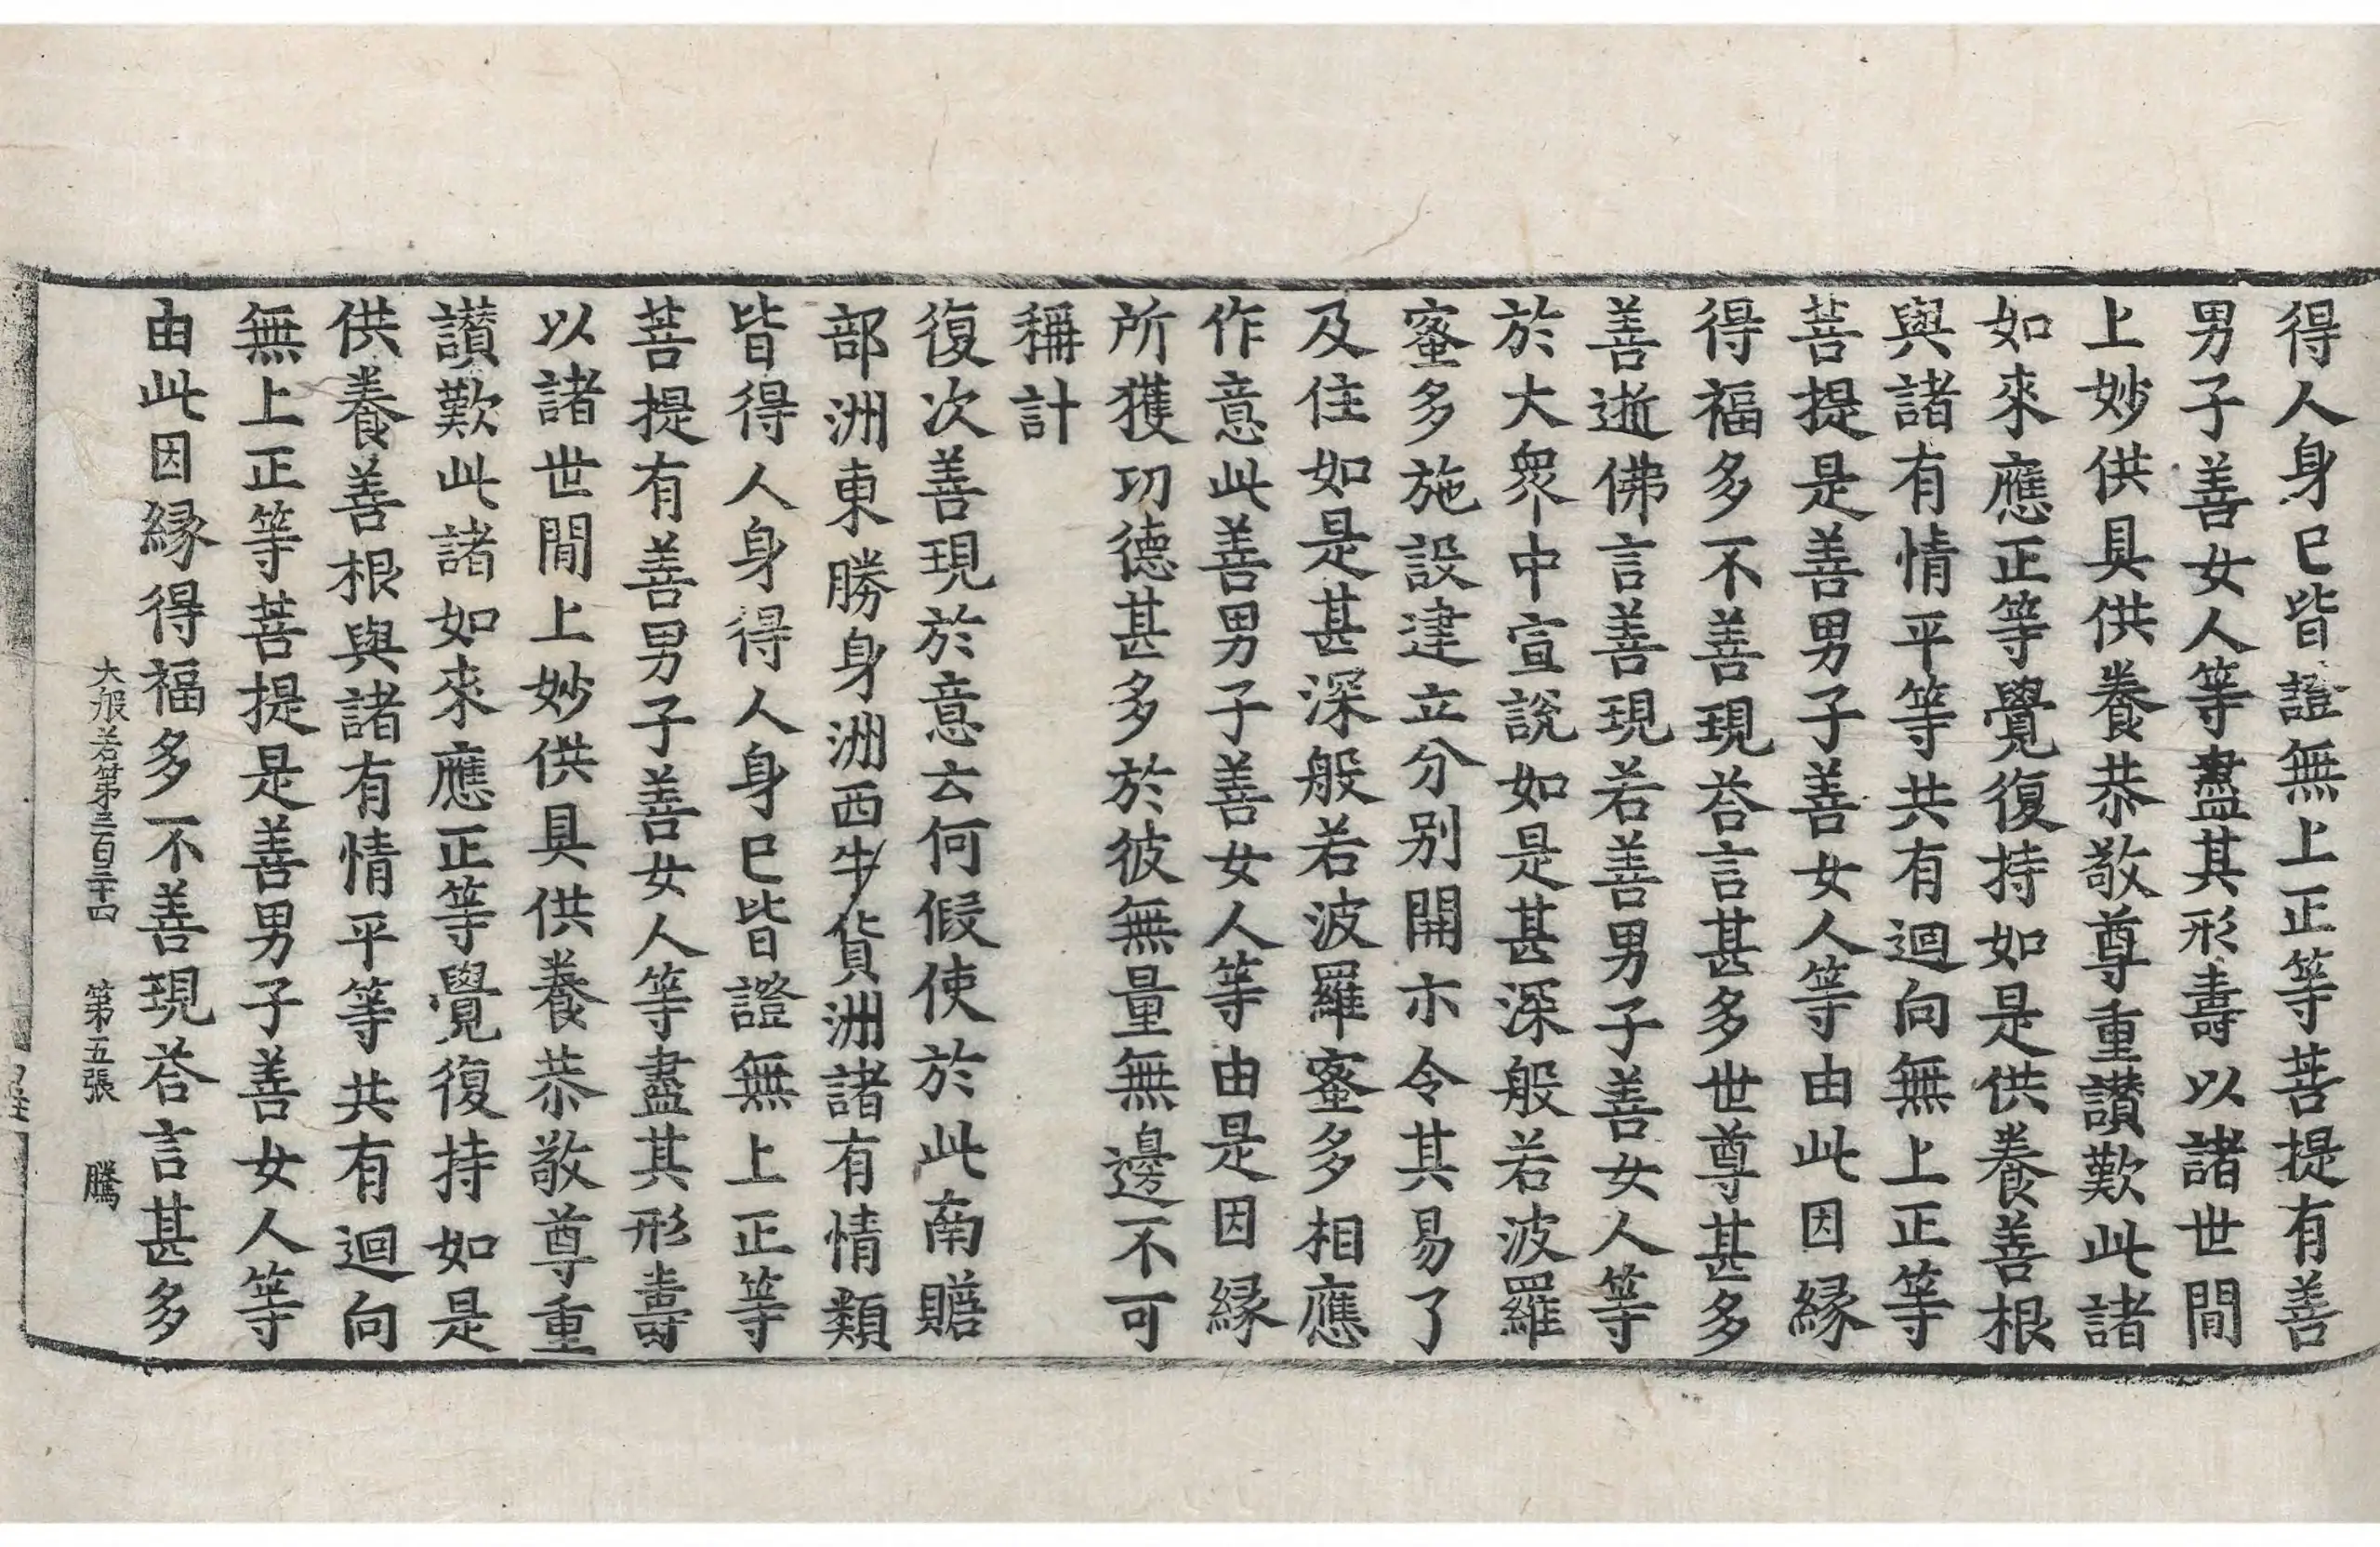 得人身已皆證無上正等菩提有善
男子善女人等盡其形壽以諸世間
上妙供具供養恭敬尊重讃歎此諸
如來應正等覺復持如是供養善根
與諸有情平等共有迴向無上正等
菩提是善男子善女人等由此因緣
得福多不善現荅言甚多世尊甚多
善逝佛言善現若善男子善女人等
於大衆中宣說如是甚深般若波羅
蜜多施設建立分別開示令其易了
及住如是甚深般若波羅蜜多相應
作意此善男子善女人等由是因緣
所獲功德甚多於彼無量無邊不可
稱計
復次善現於意云何假使於此南贍
部洲東勝身洲西牛貨洲諸有情類
皆得人身得人身已皆證無上正等
菩提有善男子善女人等盡其形壽
以諸世間上妙供具供養恭敬尊重
讃歎此諸如來應正等覺復持如是
供養善根與諸有情平等共有迴向
無上正等菩提是善男子善女人等
由此因緣得福多不善現荅言甚多
大般若第三百三十四 第五張 騰